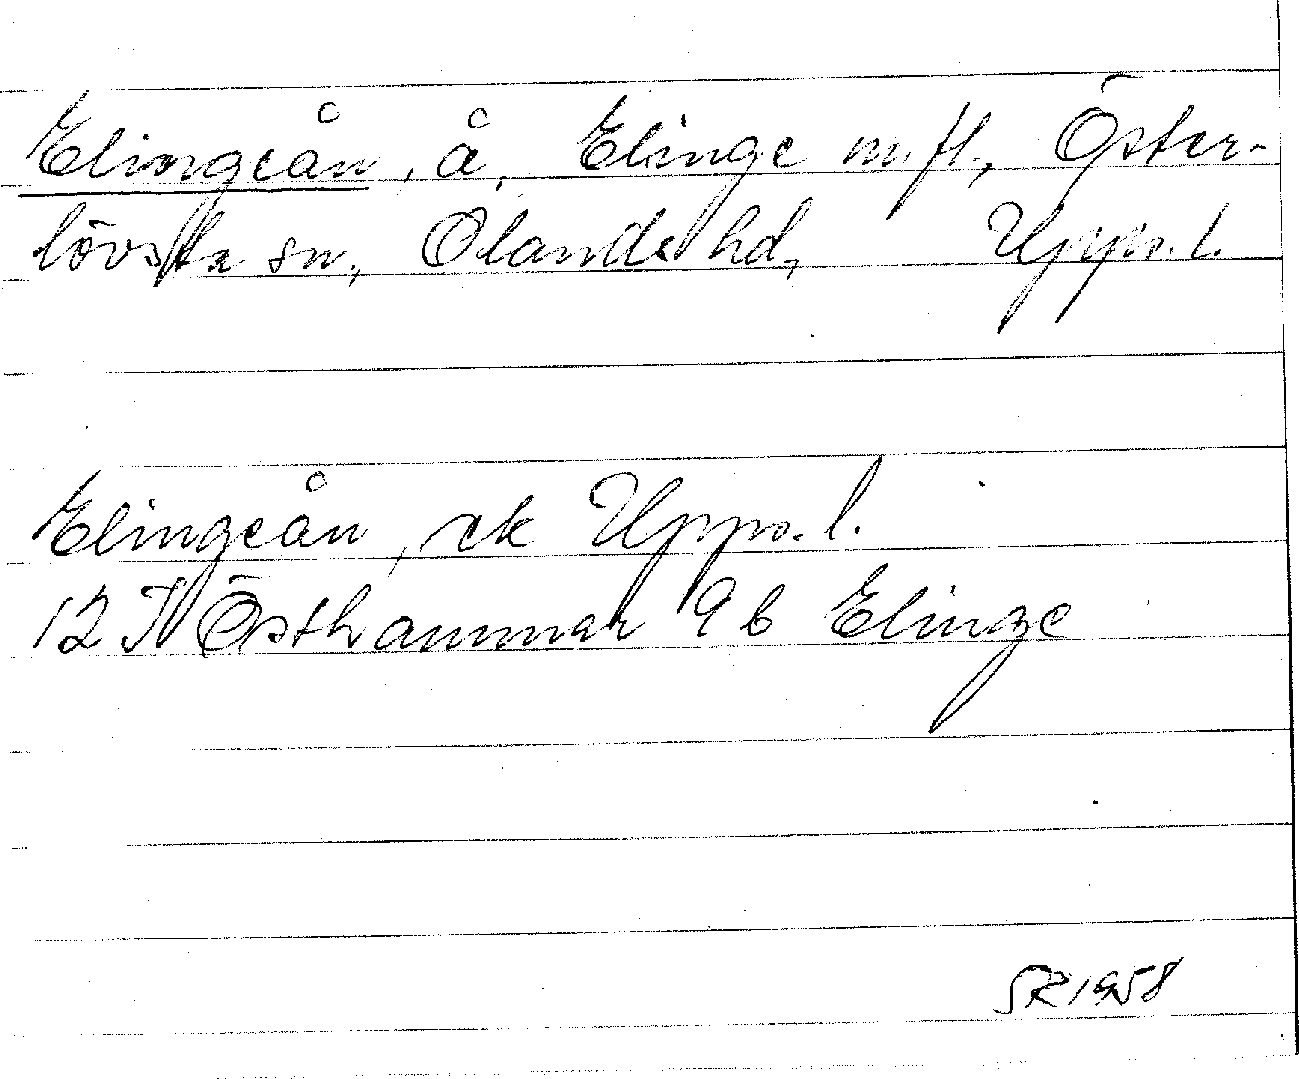 Elingeån, å, Elinge m.fl., Öster-
lövsta sn., Olands hd, Upps. l.
Elingeån, ek Upps. l.
12I Östhammar 9b Elinge
SR 1958